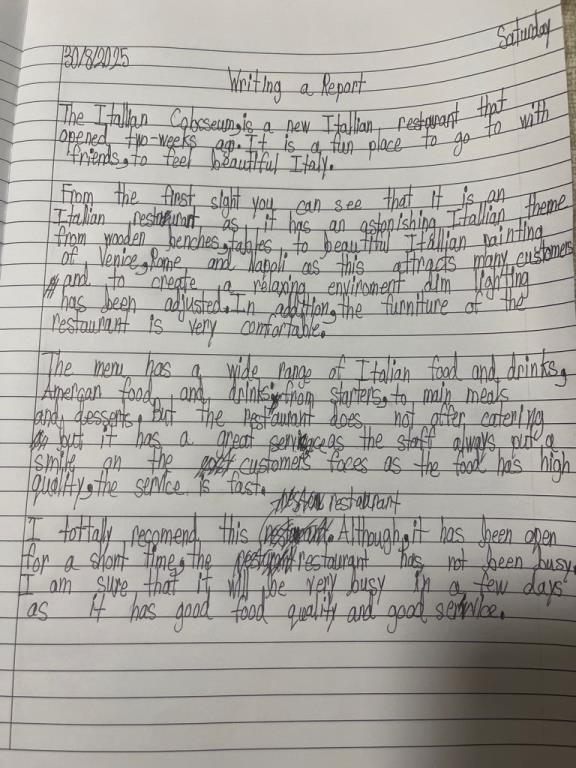 Saturday
30/8/2025
Writing a Report
The Itallian Colosseum,is a new Itallian restaurant that
opened two-weeks ago. It is a fun place to go to with
friends,to feel beautiful Italy.
From the first sight you can see that it is an
Itallian restaurant as it has an astonishing Itallian theme
from wooden benches,tables to beautiful Itallian painting
of Venice,Rome and Napoli as this attracts many customers
and to create a relaxing enviroment dim lighting
has been adjusted.In addition,the furniture of the
restaurant is very comfortable.
The menu has a wide range of Italian food and drinks,
American food and drinks from starters,to main meals
and desserts, but the restaurant does not offer catering
but it has a great service,as the staff always put a
smile on the customers faces as the food has high
quality,the service is fast.
restaurant
I tottally recomend this Although,it has been open
for a short time,the restaurant has not been busy.
I am sure that it will be very busy in a few days
as it has good food quality and good service.